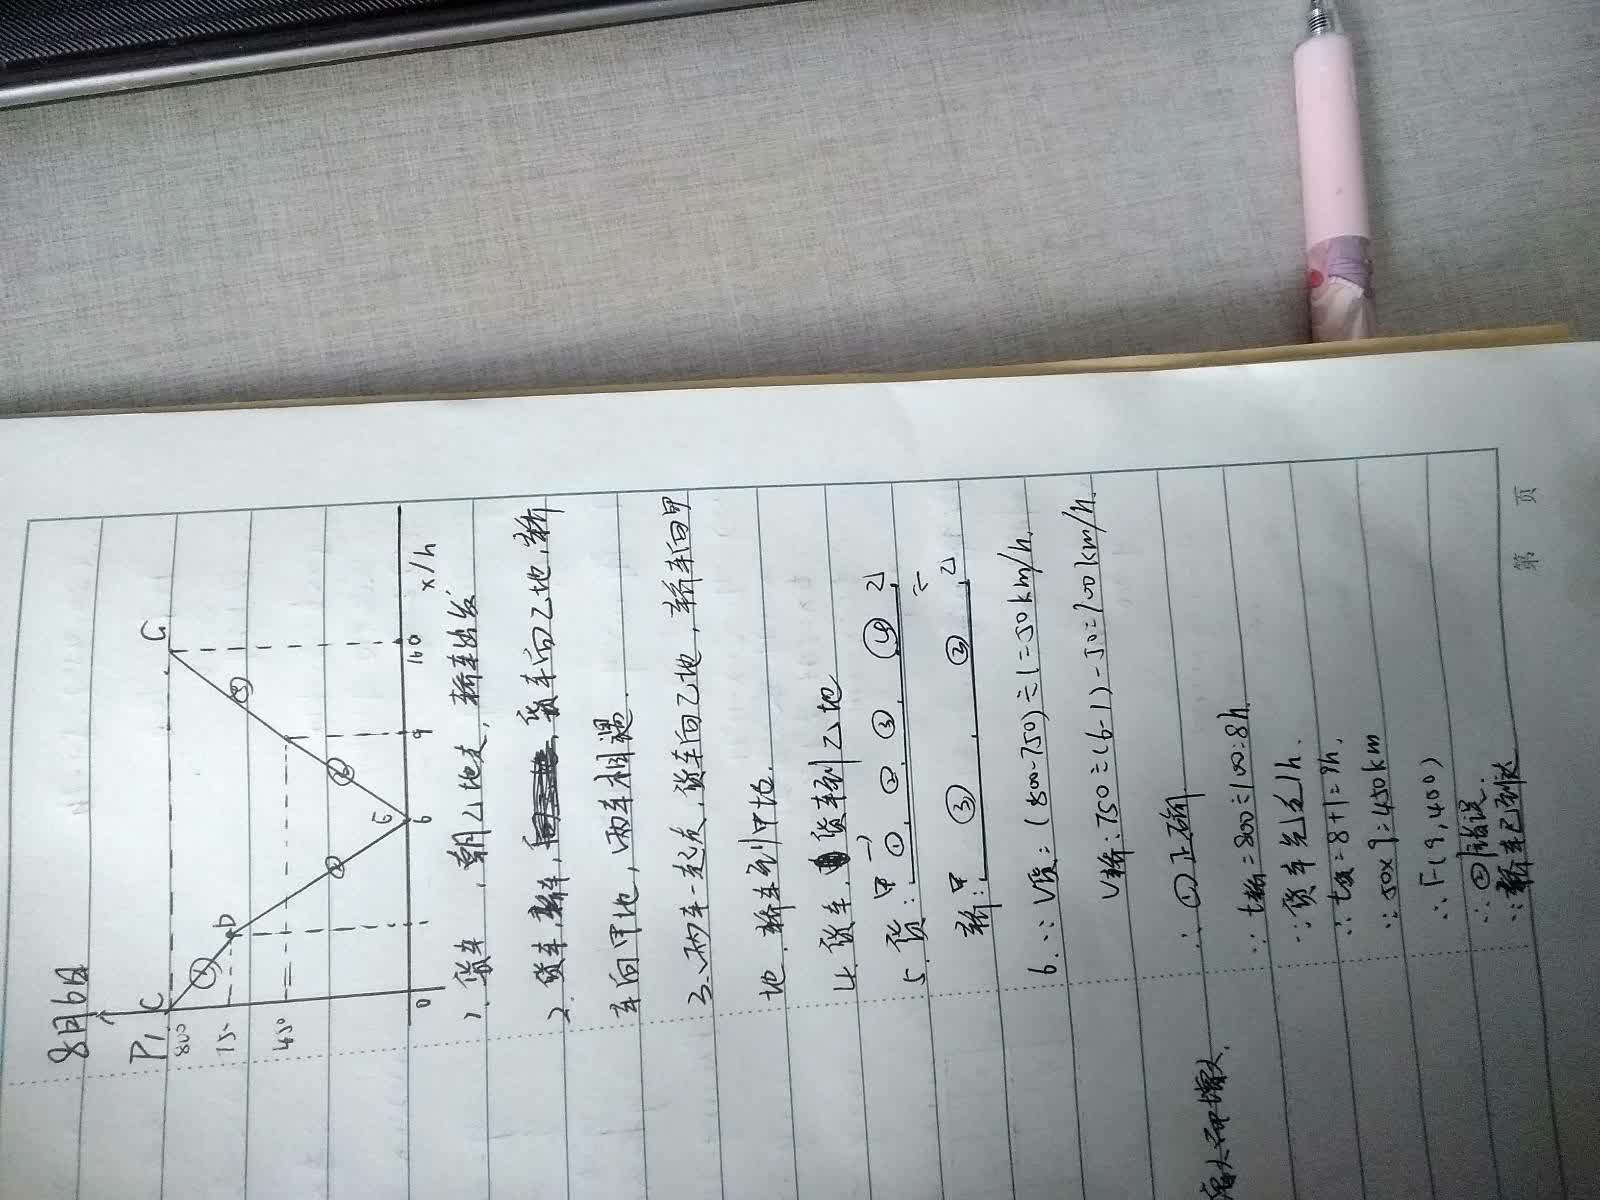 8月6日
P1
C
G
800
750
450
D
①
②
④
③
E
0
1
6
9
160
x/h
1. 货车,朝乙地走,轿车出发
2. 货车,轿车,货车向乙地,轿
车向甲地,两车相遇.
3. 两车一起从,货车向乙地,轿车向甲
地.轿车到甲地.
4. 货车,货车到乙地
5. 货: 甲 ① ② ③ ④ 乙
轿: 甲 ③ ② 乙
6. ∵V货=(800-750)÷1=50km/h.
V轿=750÷(6-1)-50=100km/h.
∴①正确
∵t轿=800÷100=8h.
∵货车先走1h.
∴t货=8+1=9h.
∴50×9=450km
∴F(9,400)
∴②错误.
∵轿车已到达
而增大.
第 页